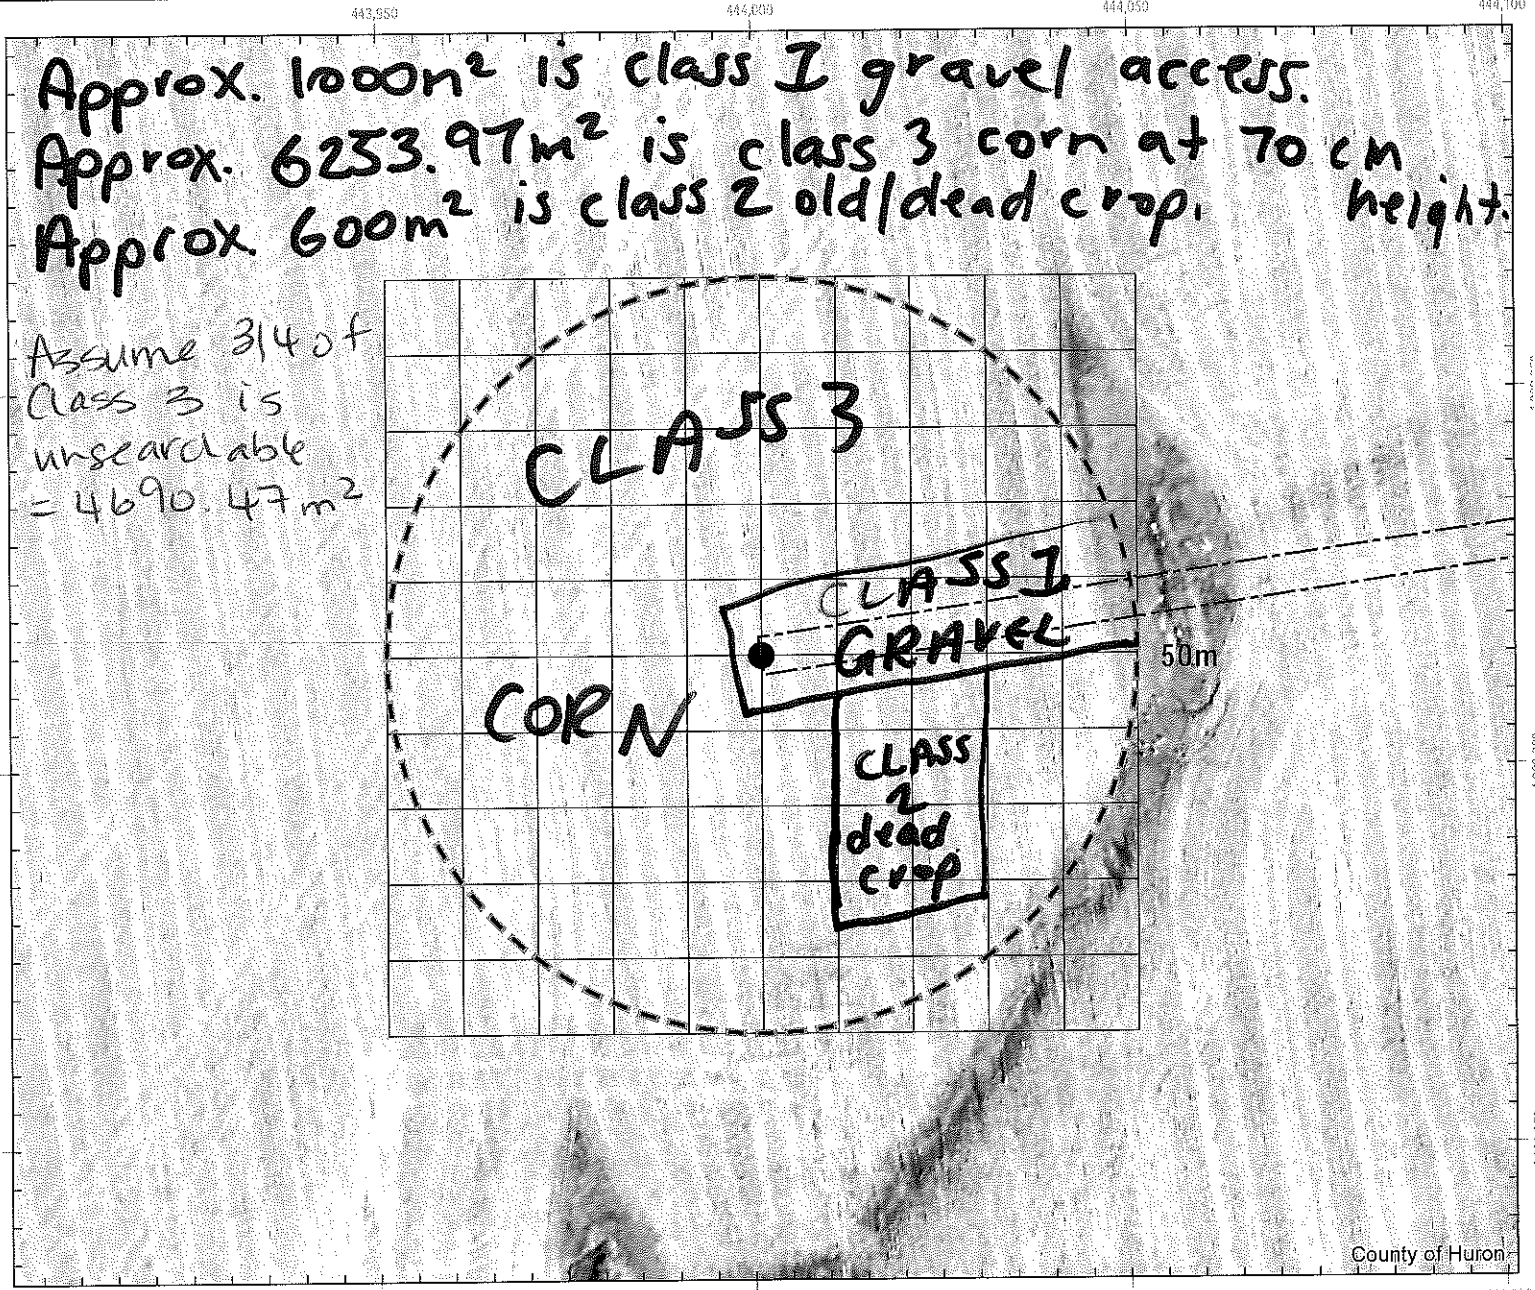 443,950
444,000
444,050
444,100
Approx. 1000m² is class I gravel access.
Approx. 6253.97m² is class 3 corn at 70 cm height.
Approx. 600m² is class 2 old/dead crop.
Assume 3/4 of
Class 3 is
unsearchable
= 4690.47m²
CLASS 3
CLASS I
GRAVEL
50m
CORN
CLASS
2
dead
crop
County of Huron